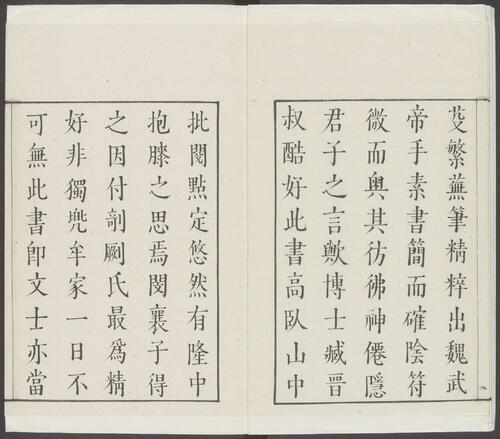 芟繁蕪筆精粹出魏武
帝手素書簡而確陰符
微而奧其彷彿神僊隱
君子之言歟博士臧晉
叔酷好此書高臥山中
批閱點定悠然有隆中
抱膝之思焉閔襄子得
之因付剞劂氏最為精
好非獨兠牟家一日不
可無此書卽文士亦當